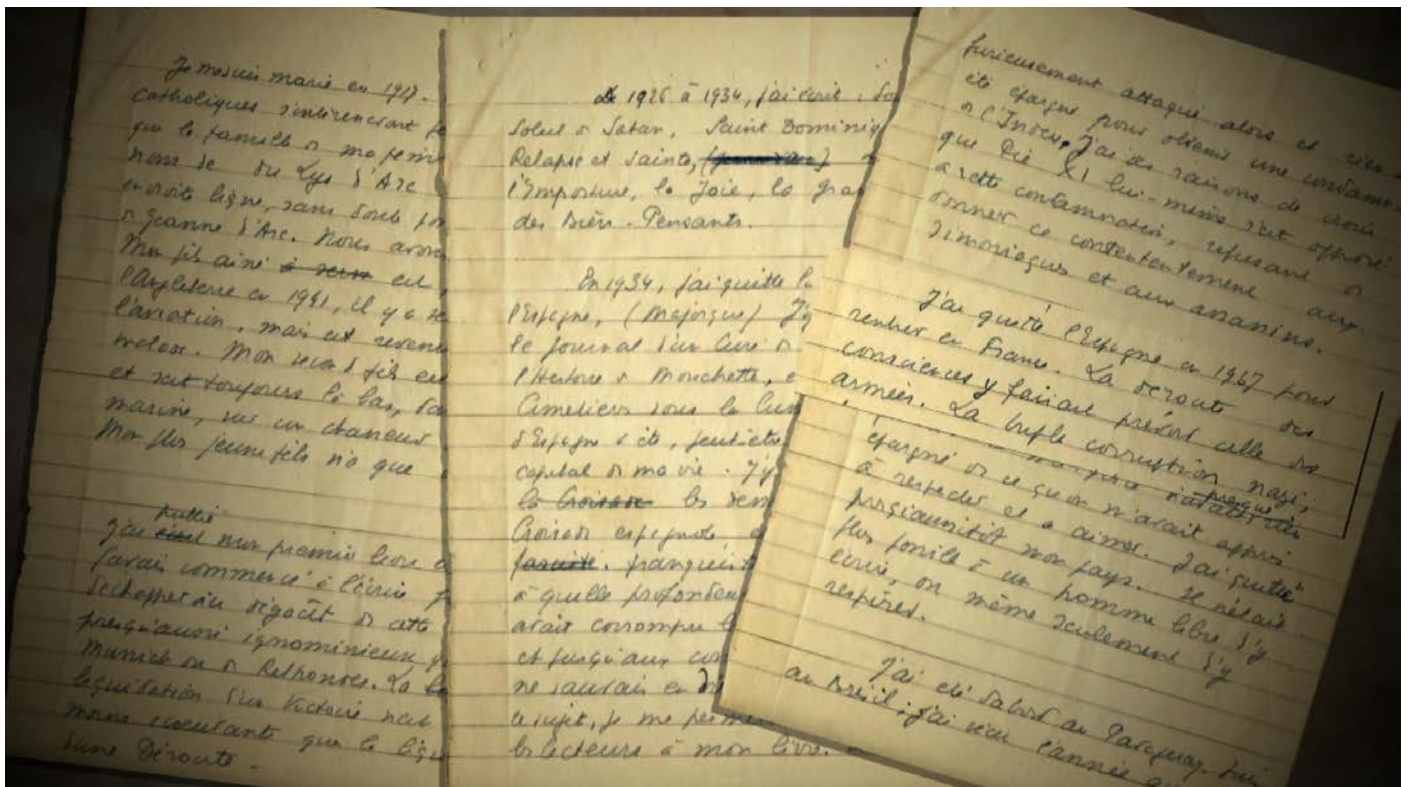 Je me suis marié en 1917.
Catholiques
que la famille de ma femme
nom de du Lys d'Arc
en droite ligne, sans doute
de Jeanne d'Arc. Nous avons
Mon fils aîné est
l'Angleterre en 1941, il y a
l'aviation, mais est revenu
malade. Mon second fils est
et sert toujours là bas, dans
marine, sur un chasseur
Mon plus jeune fils n'a que
publié
J'ai mon premier livre
J'avais commencé à l'écrire
échapper au dégoût de cette
presqu'aussi ignominieux
Munich ou de Rethondes. La
liquidation d'un Victoire
moins écoeurante que la
d'une Déroute.
De 1926 à 1934, j'ai écrit : Sous
Soleil de Satan, Saint Dominique
Relapse et Sainte, (Jeanne d'Arc)
l'Imposture, la Joie, la Grande
des Bien-Pensants.
En 1934, j'ai quitté la
l'Espagne, (Majorque) J'y
le Journal d'un Curé de
l'Histoire de Mouchette,
Cimetières sous la Lune
d'Espagne a été, peut-être
capital de ma vie. J'y
la Croisade les
Croisade espagnole
fasciste. franquiste
à quelle profondeur
avait corrompu
et jusqu'aux
ne saurais en dire
ce sujet, je me permets
les lecteurs à mon livre.
furieusement attaqué alors et rien
été épargné pour obtenir une condamnation
de l'Index, j'ai des raisons de croire
que Pie XI lui-même s'est opposé
à cette condamnation, refusant de
donner ce contentement aux
simoniaques et aux assassins.
J'ai quitté l'Espagne en 1937 pour
rentrer en France. La déroute des
consciences y faisait prévoir celle des
armées. La triple corruption nazie,
presque rien
épargné de ce qu'on m'avait appris
à respecter et à aimer. J'ai quitté
presqu'aussitôt mon pays. Il n'était
plus possible à un homme libre d'y
écrire, ou même seulement d'y
respirer.
J'ai été d'abord au Paraguay, puis
au Brésil ; j'ai vécu l'année